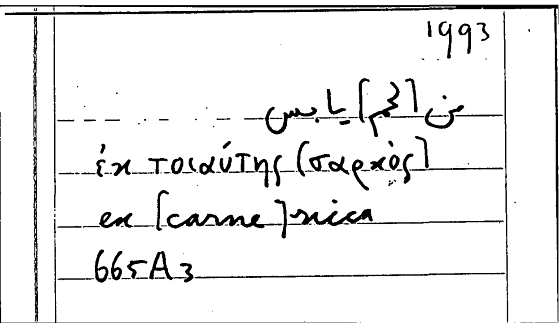 1993
من [لحم] يابس
ἐκ τοιαύτης [σαρκὸς]
ex [carne] sicca
665A3